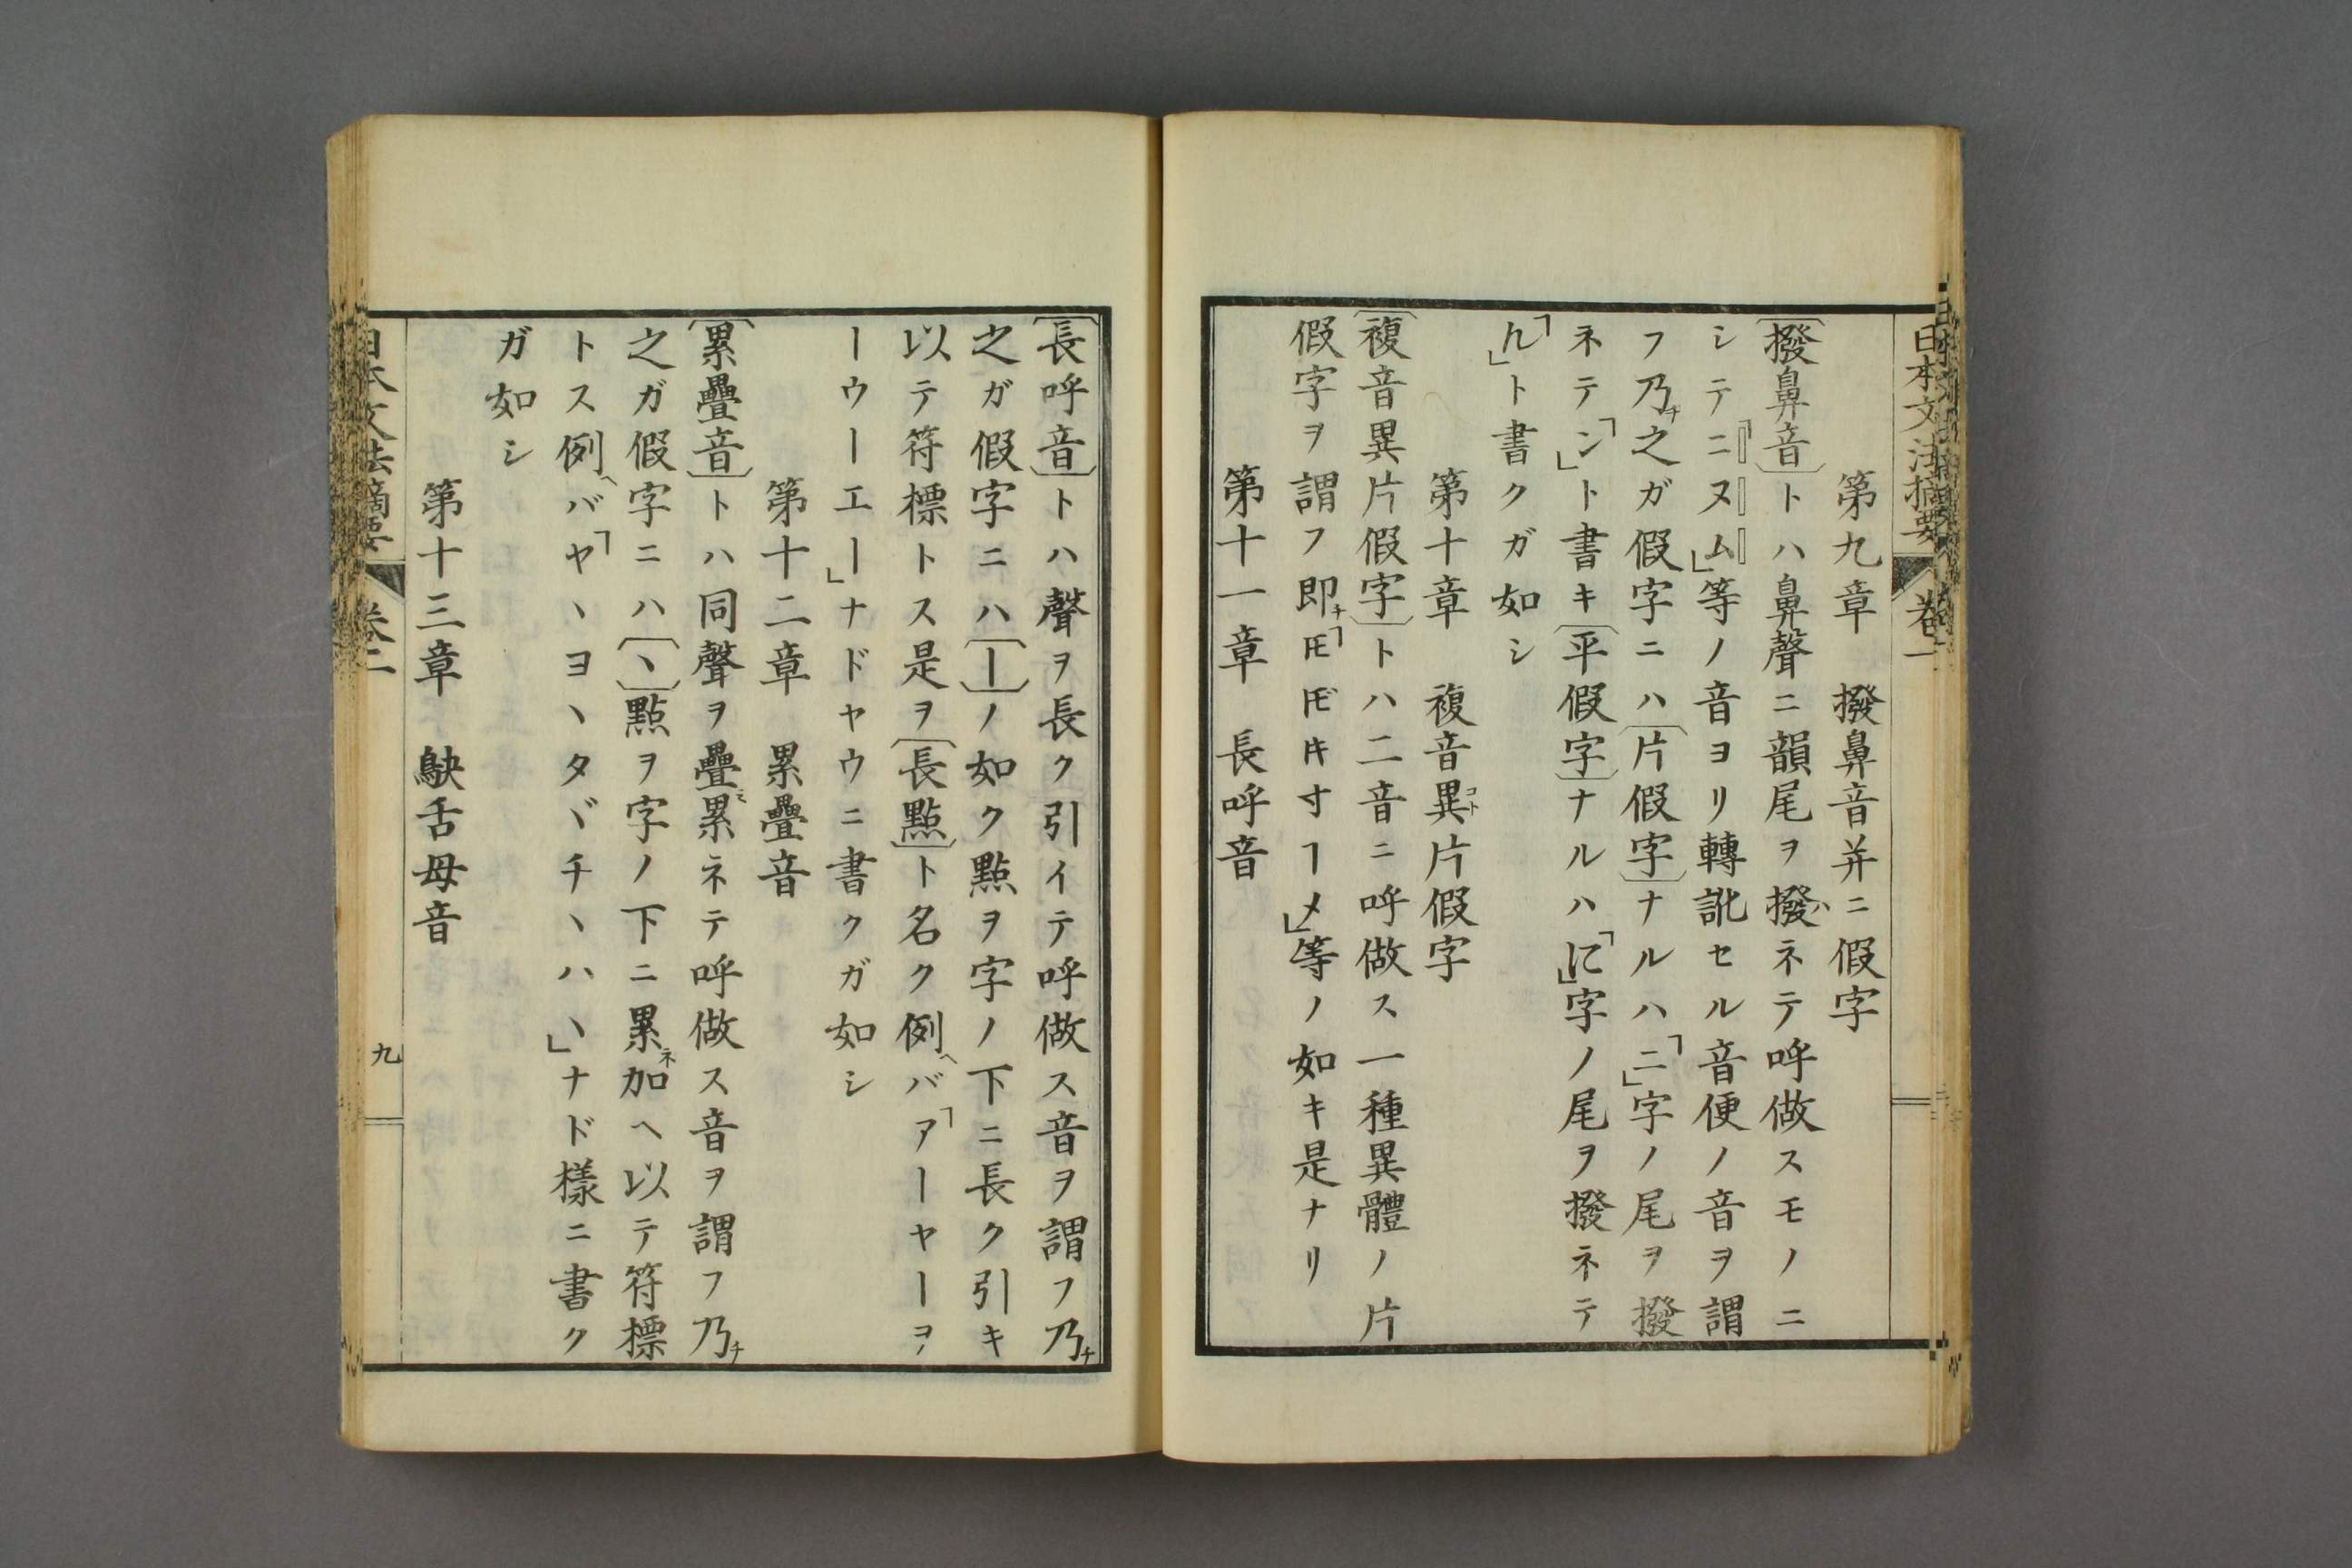 日本文法摘要 卷一
第九章 撥鼻音并ニ假字
〔撥鼻音〕トハ鼻聲ニ韻尾ヲ撥ハネテ呼做スモノニ
シテ「ニヌム」等ノ音ヨリ轉訛セル音便ノ音ヲ謂
フ乃チ之ガ假字ニハ〔片假字〕ナルハ「ニ」字ノ尾ヲ撥
ネテ「ン」ト書キ〔平假字〕ナルハ「に」字ノ尾ヲ撥ネテ
「ん」ト書クガ如シ
第十章 複音異コト片假字
〔複音異片假字〕トハ二音ニ呼做ス一種異體ノ片
假字ヲ謂フ即チ「𪜈𪜈゙𪜇寸ヿ〆」等ノ如キ是ナリ
第十一章 長呼音
〔長呼音〕トハ聲ヲ長ク引イテ呼做ス音ヲ謂フ乃チ
之ガ假字ニハ〔ー〕ノ如ク點ヲ字ノ下ニ長ク引キ
以テ符標トス是ヲ〔長點〕ト名ク例ヘバ「アーヤーヲ
ーウーエー」ナドヤウニ書クガ如シ
第十二章 累疊音
〔累疊音〕トハ同聲ヲ疊ミ累ネテ呼做ス音ヲ謂フ乃チ
之ガ假字ニハ〔ヽ〕點ヲ字ノ下ニ累ネ加ヘ以テ符標
トス例ヘバ「ヤヽヨヽタヾチヽハヽ」ナド樣ニ書ク
ガ如シ
第十三章 鴃舌母音
日本文法摘要 卷二 九